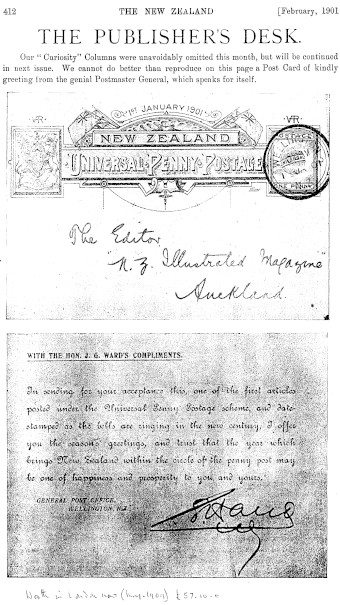 412 THE NEW ZEALAND [February, 1901
THE PUBLISHER'S DESK.
Our "Curiosity" Columns were unavoidably omitted this month, but will be continued
in next issue. We cannot do better than reproduce on this page a Post Card of kindly
greeting from the genial Postmaster General, which speaks for itself.
1ST JANUARY 1901
VR VR
NEW ZEALAND
UNIVERSAL PENNY POSTAGE
ONE PENNY
The Editor
"N.Z. Illustrated Magazine"
Auckland.
WITH THE HON. J. G. WARD'S COMPLIMENTS.
In sending for your acceptance this, one of the first articles
posted under the Universal Penny Postage scheme, and date-
stamped as the bells are ringing in the new century, I offer
you the season's greetings, and trust that the year which
brings New Zealand within the circle of the penny post may
be one of happiness and prosperity to you and yours.
GENERAL POST OFFICE,
WELLINGTON, N.Z.
Worth in
£57.10-0